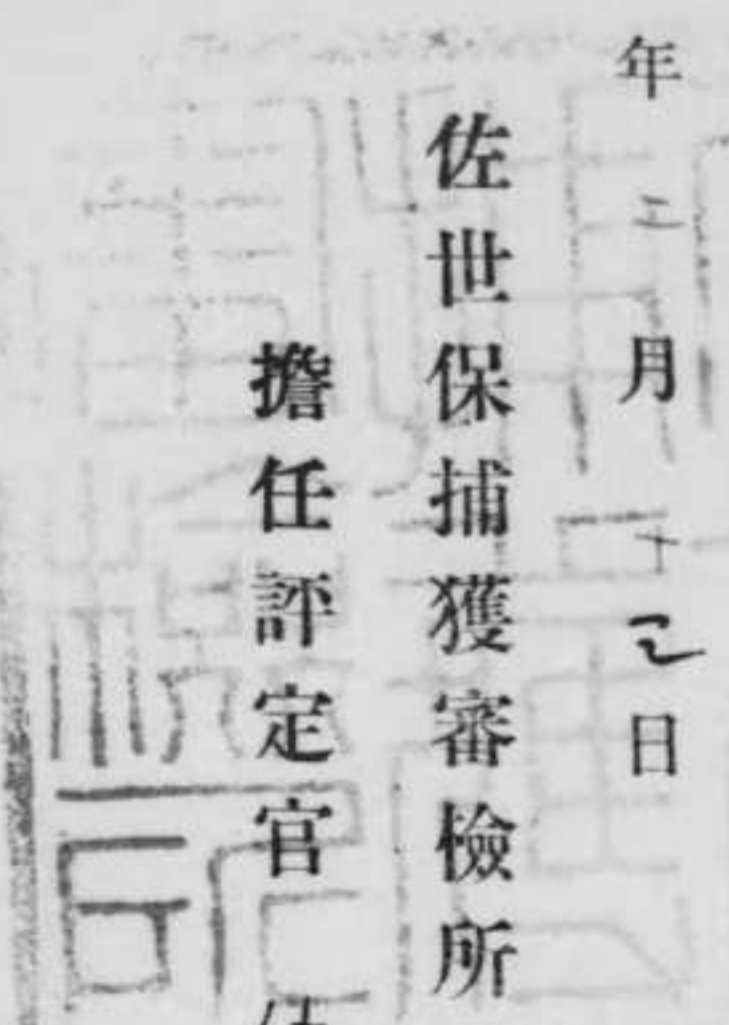 年二月十二日
佐世保捕獲審檢所
擔任評定官